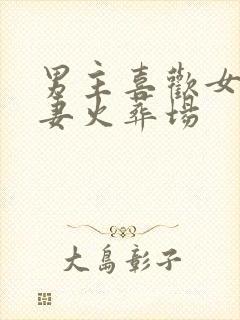 男主喜歡女
妻火葬場
大島彰子